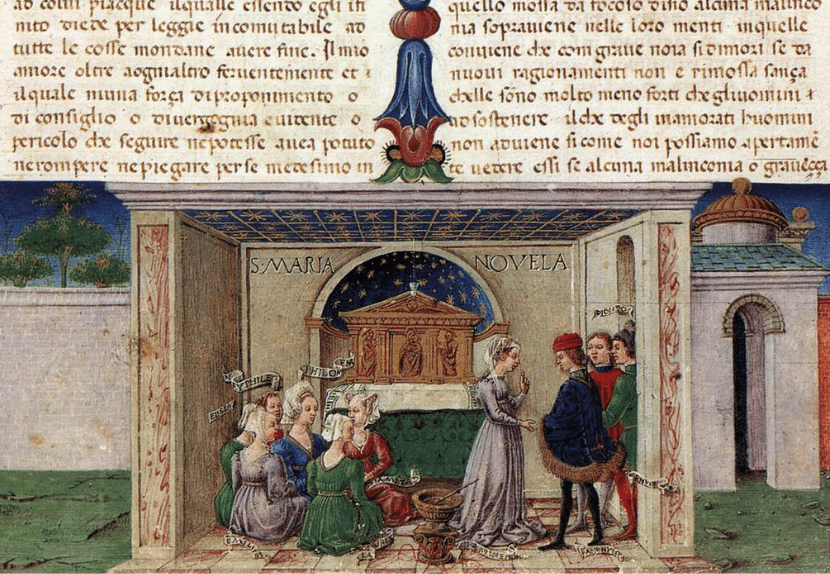 ad colui piacque ilquale essendo egli ifi
nito diede per leggie incomutabile ad
tutte le cosse mondane avere fine. Il mio
amore oltre aogni altro ferventemente et
alquale niuna forza di proponimento o
di consiglio o di vergognia evitente o
pericolo che seguire ne potesse avea potuto
ne rompere ne piegare per se medesimo in
quello mossa da focoso disio alcuna malinco
nia sopraviene nelle loro menti inquelle
conviene che com grave noia si dimori se da
nuovi ragionamenti non e rimossa sança
chelle sono molto meno forti che gliuomini
ad sostenere il che degli inamorati huomini
non adviene si come noi possiamo apertamē
te vedere essi se alcuna malinconia o gravecça
S·MARIA NOVELA